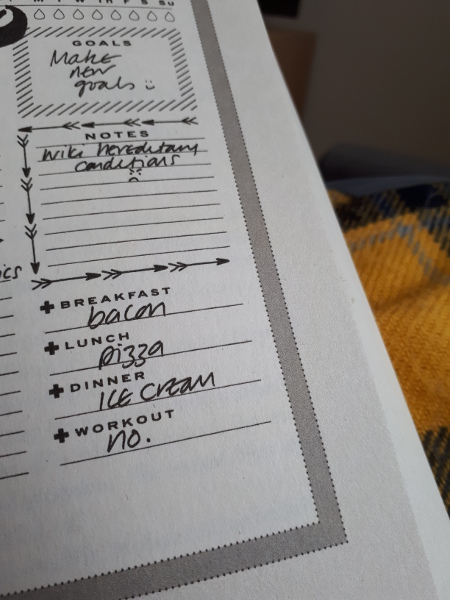 M T W Th F S Su
GOALS
Make
new
goals :)
NOTES
Wiki hereditary
conditions
:(
ics
BREAKFAST
bacon
LUNCH
pizza
DINNER
ICE CREAM
WORKOUT
no.